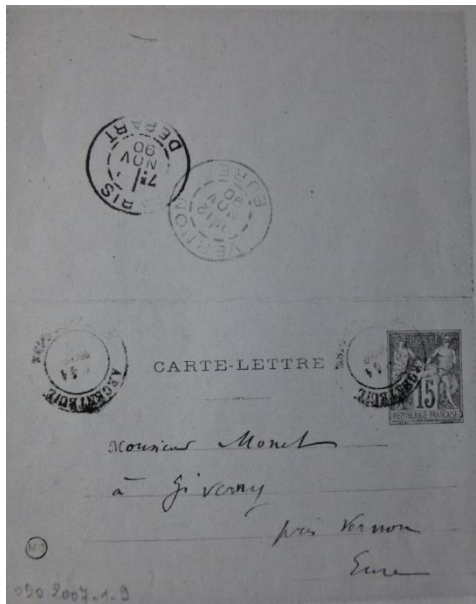 PARIS
DEPART
7
NOV
90
VERNON
EURE
12
NOV
90
ARGENTEUIL
11
CARTE-LETTRE
ARGENTEUIL
11
15
REPUBLIQUE FRANCAISE
Monsieur Monet
à Giverny
près Vernon
Eure
ODO 2007-1-9